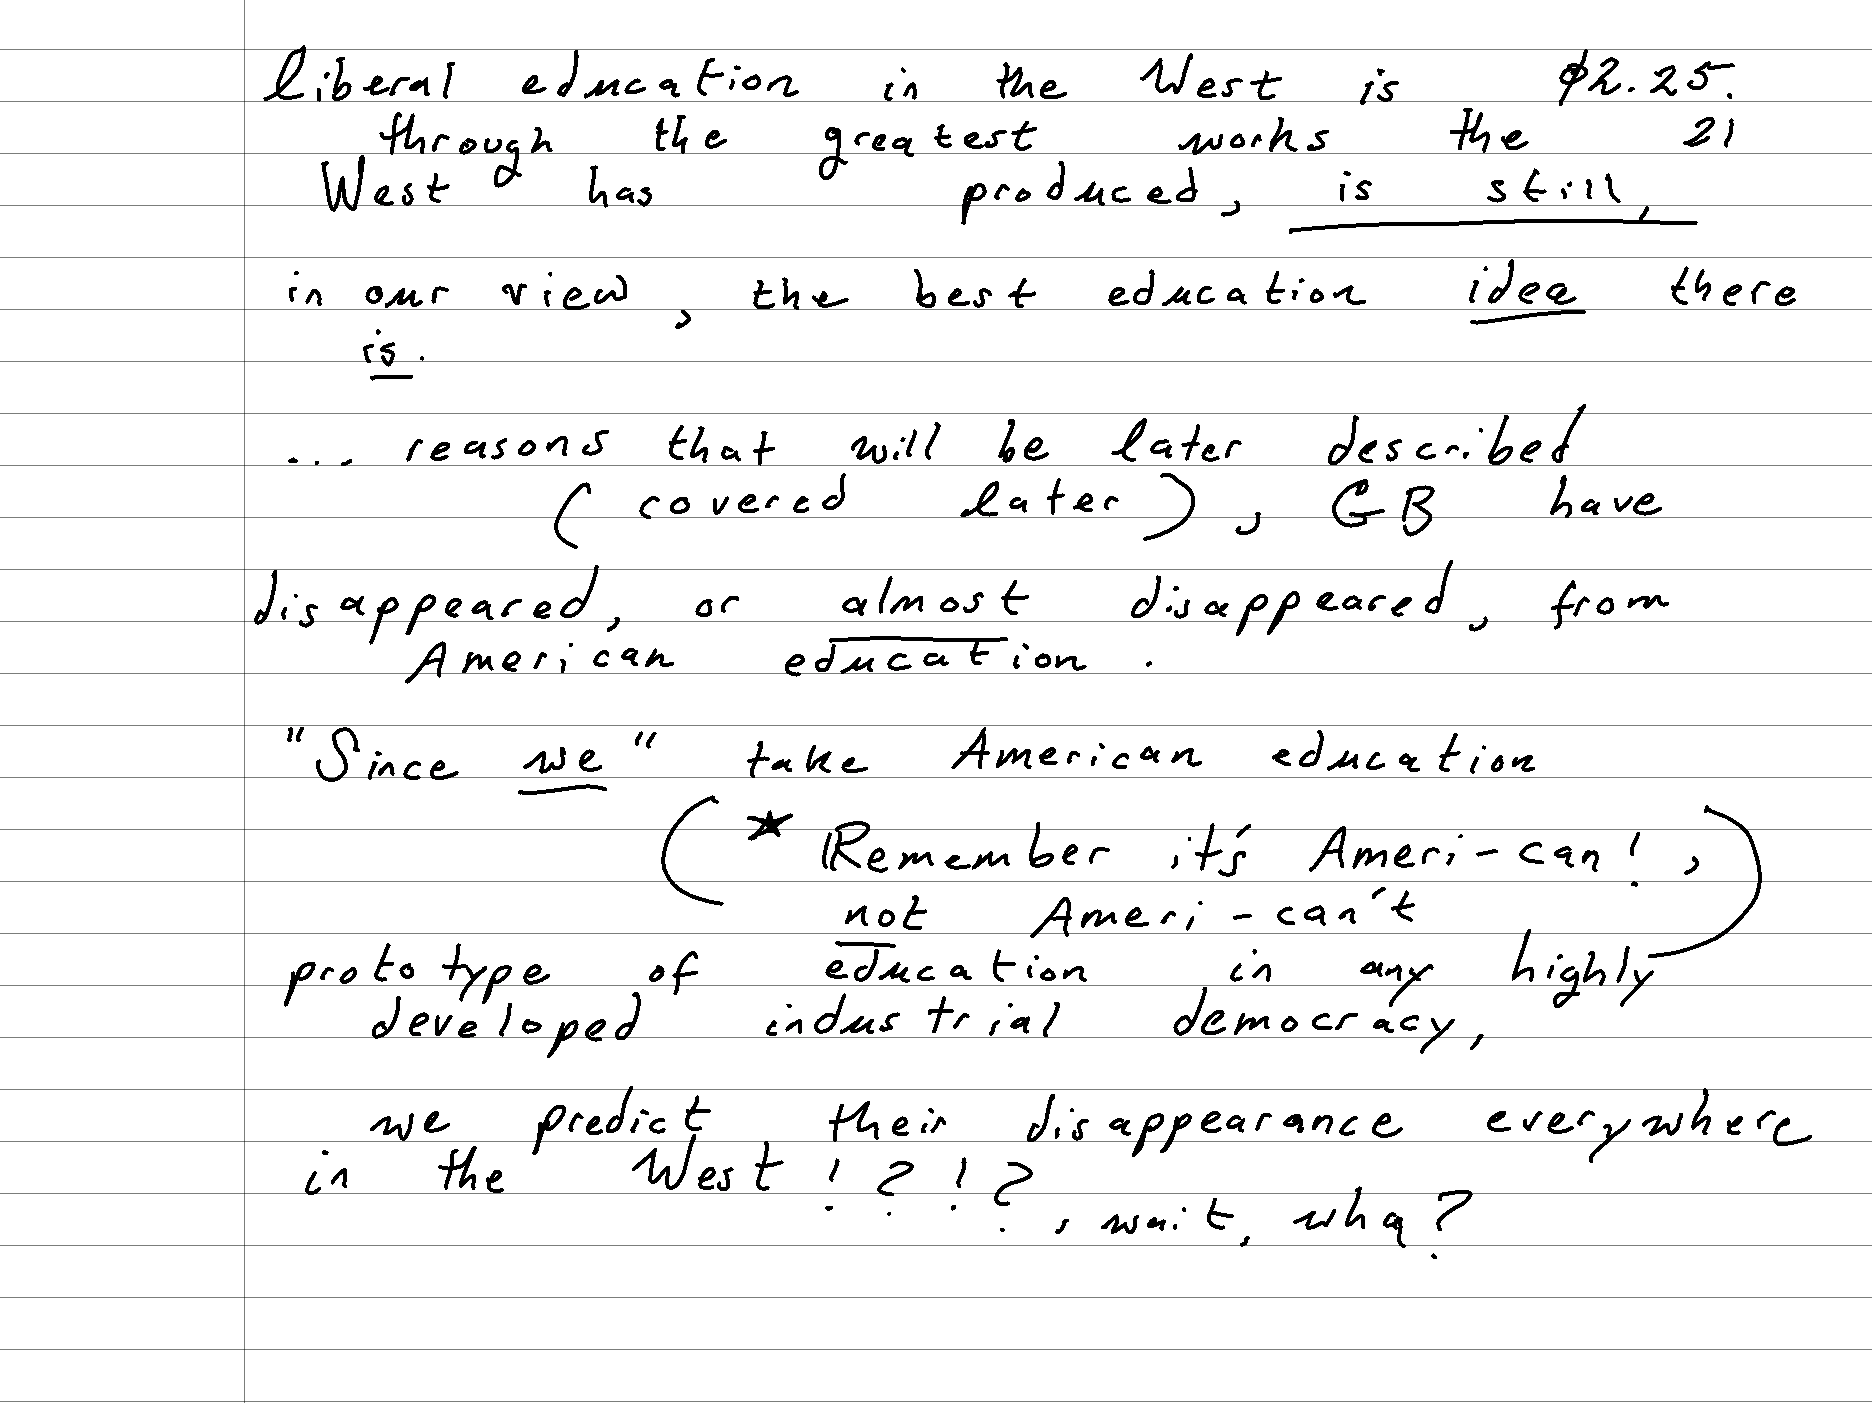 liberal education in the West is $2.25.
through the greatest works the 21
West has produced, is still,
in our view, the best education idea there
is.
... reasons that will be later described
(covered later), GB have
disappeared, or almost disappeared, from
American education.
"Since we" take American education
(* Remember it's Ameri-can!,
not Ameri-can't)
prototype of education in any highly
developed industrial democracy,
we predict their disappearance everywhere
in the West!?!?, wait, wha?